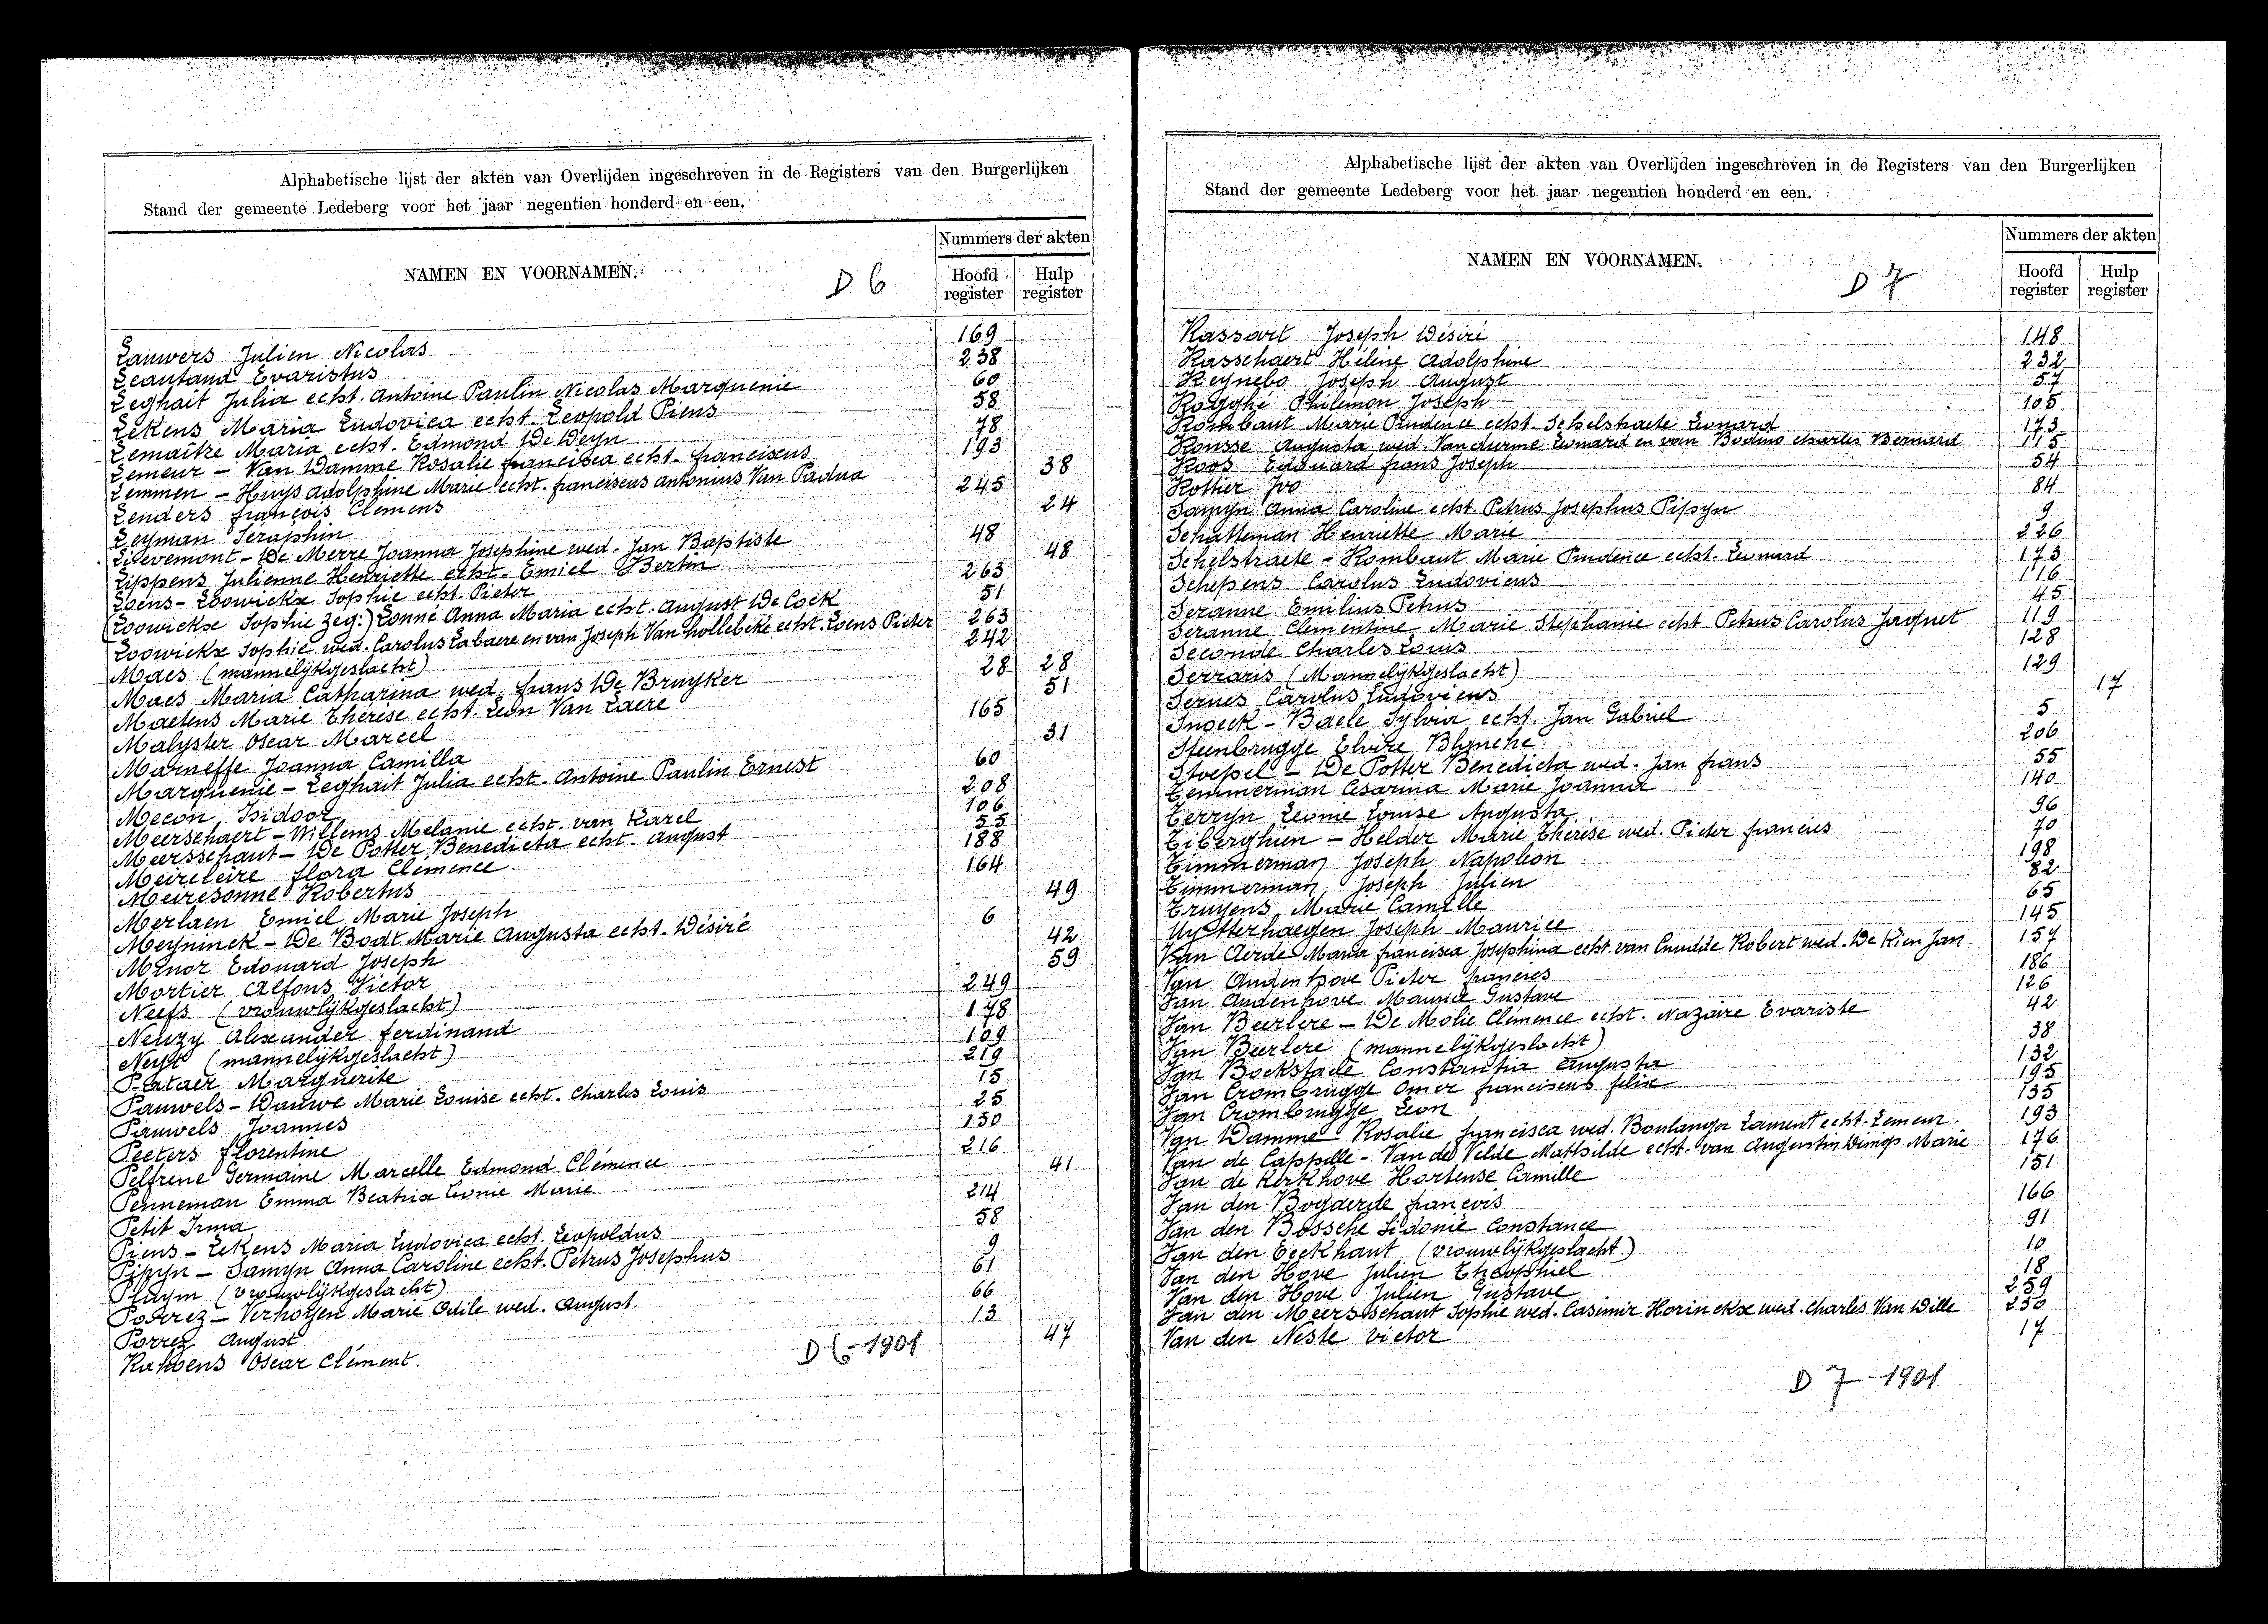 Alphabetische lijst der akten van Overlijden ingeschreven in de Registers van den Burgerlijken
Stand der gemeente Ledeberg voor het jaar negentien honderd en een.
NAMEN EN VOORNAMEN.
D 6
Nummers der akten
Hoofd register
Hulp register
Lauwers Julien Nicolas 169
Leautaud Evaristus 238
Leghait Julia echt. Antoine Paulin Nicolas Marquenie 60
Lekens Maria Ludovica echt. Leopold Piens 58
Lemaître Maria echt. Edmond De Deyn 78
Lemeur - Van Damme Rosalie francisca echt. franciscus 193
Lemmen - Huys Adolphine Marie echt. franciscus antonius Van Padua 38
Lenders françois Clemens 245
Leyman Séraphin 24
Lievemont - De Merre Joanna Josephine wed. Jan Baptiste 48
Lippens Julienne Henriette echt. Emiel Bertin 48
Loens - Loowickx Sophie echt. Pieter 263
(Loowickx Sophie zeg:) Lonné Anna Maria echt. August De Cock 51
Loowickx Sophie wed. Carolus Labaere en van Joseph Van hollebeke echt. Loens Pieter 263
Maes (mannelijkgeslacht) 242
Maes Maria Catharina wed. frans De Bruyker 28 28
Maetens Marie Thérèse echt. Leon Van Laere 51
Malyster Oscar Marcel 165
Marneffe Joanna Camilla 31
Marquenie - Leghait Julia echt. Antoine Paulin Ernest 60
Mecon Isidoor 208
Meerschaert - Willems Melanie echt. van Karel 106
Meersschaut - De Potter Benedicta echt. August 55
Meireleire flora Clémence 188
Meiresonne Robertus 164
Merlaen Emiel Marie Joseph 49
Meyninck - De Bodt Marie Augusta echt. Désiré 6
Minor Edouard Joseph 42
Mortier Alfons Victor 59
Neefs (vrouwlijkgeslacht) 249
Neuzy Alexander ferdinand 178
Neyt (mannelijkgeslacht) 109
Pataer Marguerite 219
Pauwels - Dauwe Marie Louise echt. Charles Louis 15
Pauwels Joannes 25
Peeters florentine 150
Pelfrene Germaine Marcelle Edmond Clémence 216
Penneman Emma Beatrix Leonie Marie 41
Petit Irma 214
Piens - Lekens Maria Ludovica echt. Leopoldus 58
Pipyn - Samyn Anna Caroline echt. Petrus Josephus 9
Pluym (vrouwlijkgeslacht) 61
Porrez - Verhoyen Marie Odile wed. August. 66
Porrez August 13
Oscar Clément. 47
D 6 - 1901
Alphabetische lijst der akten van Overlijden ingeschreven in de Registers van den Burgerlijken
Stand der gemeente Ledeberg voor het jaar negentien honderd en een.
NAMEN EN VOORNAMEN.
D 7
Nummers der akten
Hoofd register
Hulp register
Rassart Joseph Désiré 148
Rasschaert Hélène Adolphine 232
Reynebo Joseph August 57
Rogghé Philemon Joseph 105
Rombaut Marie Prudence echt. Schelstraete Leonard 173
Rousse Augusta wed. Vandurme Leonard en van Bodino charles Bernard 115
Roos Edouard frans Joseph 54
Rottier Ivo 84
Samyn Anna Caroline echt. Petrus Josephus Pipyn 9
Schatteman Henriette Marie 226
Schelstraete - Rombaut Marie Prudence echt. Leonard 173
Schepens Carolus Ludovicus 116
Seranne Emilius Petrus 45
Seranne Clementine Marie Stephanie echt Petrus Carolus Jaquet 119
Seconde Charles Louis 128
Serraris (Mannelijkgeslacht) 129
Serues Carolus Ludovicus 17
Snoeck - Baele Sylvia echt. Jan Gabriel 5
Steenbrugge Elvire Blanche 206
Stoepel - De Potter Benedicta wed. Jan frans 55
Temmerman Cesarina Marie Joanna 140
Terryn Leonie Louise Augusta 96
Tiberghien - Helder Marie Thérèse wed. Pieter francies 70
Timmerman Joseph Napoleon 198
Timmerman Joseph Julien 82
Truyens Marie Camille 65
Uytterhaegen Joseph Maurice 145
Van Aerde Maria francisca Josephina echt. van Cnudde Robert wed. De Rien Jan 157
Van Audenhove Pieter francies 186
Van Audenhove Maurice Gustave 126
Van Beerlere - De Molie Clémence echt. Nazaire Evariste 42
Van Beerlere (mannelijkgeslacht) 38
Van Bockstaele Constantia Augusta 132
Van Crombrugge Omer franciscus felix 195
Van Crombrugge Leon 135
Van Damme Rosalie francisca wed. Boulanger Laurent echt. Lemeur. 193
Van de Cappelle - Van de Velde Mathilde echt. van Augustin Marie 176
Van de Kerkhove Hortense Camille 151
Van den Bogaerde françois 166
Van den Bossche Sidonie Constance 91
Van den Eeckhaut (vrouwlijkgeslacht) 10
Van den Hove Julien Theophiel 18
Van den Hove Julien Gustave 259
Van den Meersschaut Sophie wed. Casimir Horinckx wed. Charles Van Wille 250
Van den Neste Victor 17
D 7 - 1901